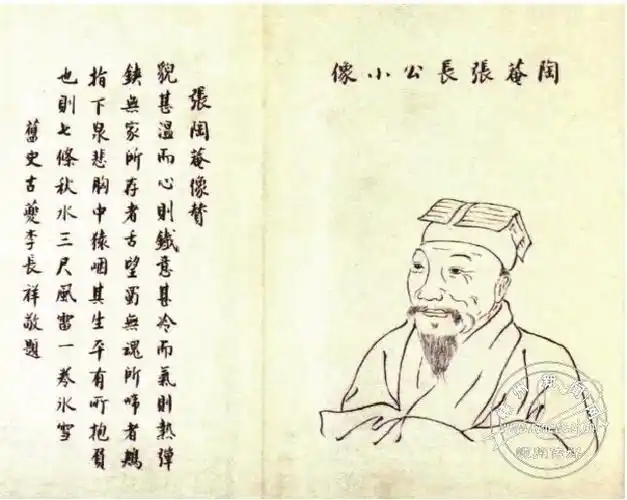 陶菴張長公小像
張陶菴像贊
貌甚溫而心則鐵意甚冷而氣則熱彈
鋏無家所存者舌望蜀無魂所啼者
指下泉悲胸中猿咽其生平有所抱負
也則七條秋水三尺風雷一卷冰雪
舊史古夔李長祥敬題